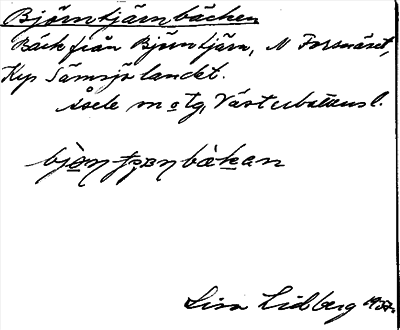 Björntjärnbäcken
Bäck från Björntjärn, N Forsnäset,
Kyp Sämsjölandet.
Åsele m o tg, Västerbottens l.
Lisa Lidberg